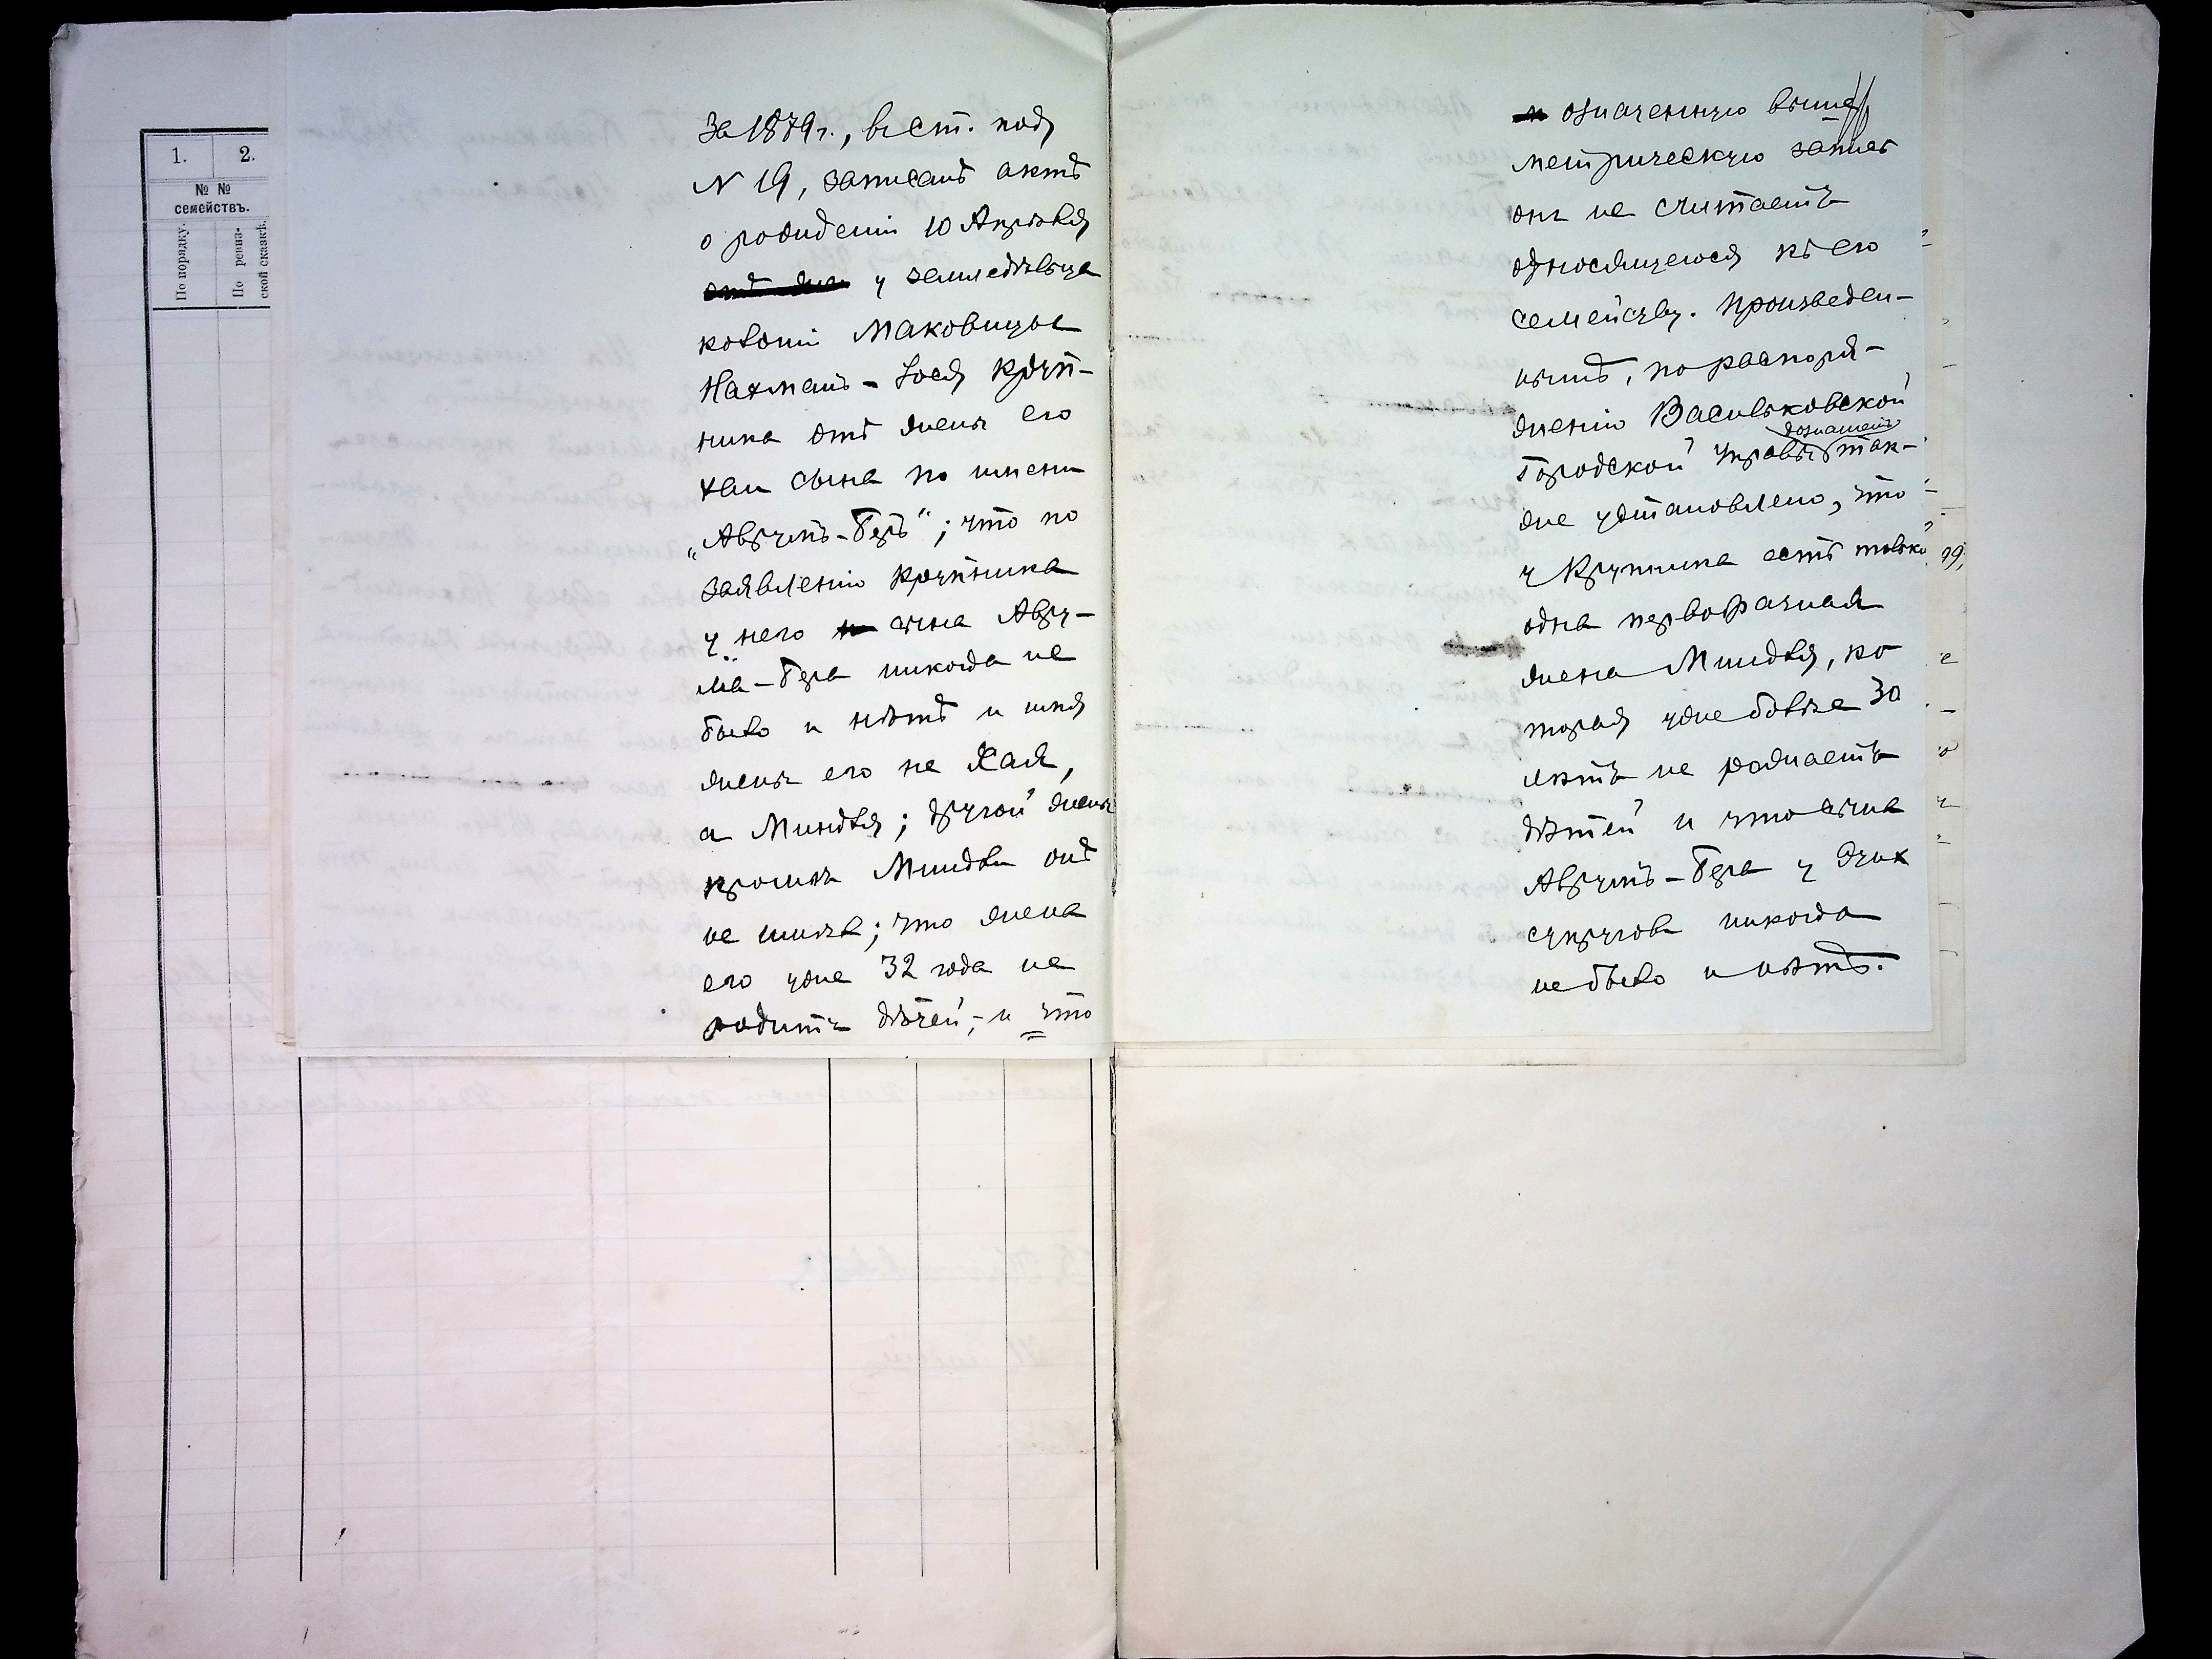 1.
2.
№ №
семействъ.
По порядку.
По ревиз-
ской сказкѣ.
За 1879 г., въ ст. подъ
N 19, записанъ актъ
о рожденіи 10 Апрѣля
у земледѣльца
колоніи Маковицы
Нахманъ-Іося Круп-
ника отъ жены его
Хаи сына по имени
„Аврумъ-Беръ"; что по
заявленію Крупника
у него сына Авру-
ма-Бера никогда не
было и нѣтъ и имя
жены его не Хая,
а Миндля; другой жены
кромѣ Миндли онъ
не имѣлъ; что жена
его уже 32 года не
родитъ дѣтей; и что
означенную выше
метрическую запись
онъ не считаетъ
относящеюся къ его
семейству. Произведен-
нымъ, по распоря-
женію Васильковской
Городской Управы дознаніемъ так-
же установлено, что
у Крупника есть только
одна первобрачная
жена Миндля, ко
торая уже болѣе 30
лѣтъ не рожаетъ
дѣтей и что сына
Аврумъ-Бера у этих
супруговъ никогда
не было и нѣтъ.